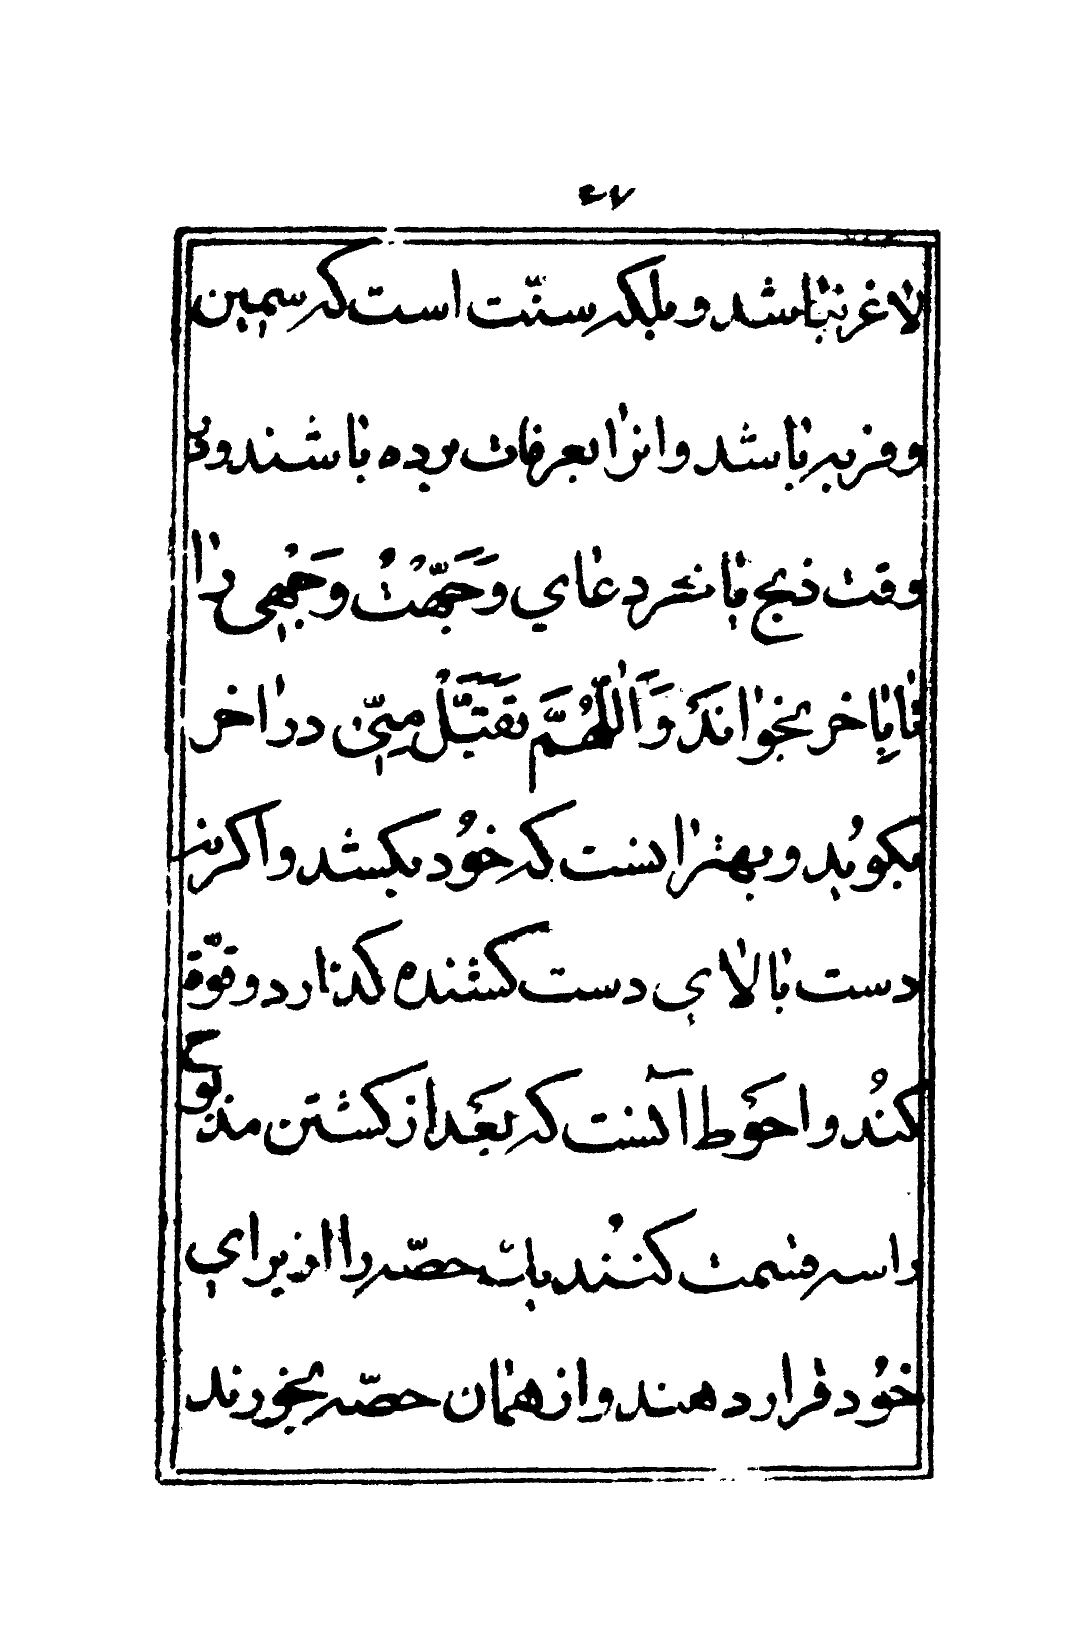 ۴۷
لاغر نباشد و بلکه سنّت است که سمین
و فربه باشد و انرا بعرفات برده باشند و در
وقت ذبح یا نحر دعای وَجَّهْتُ وَجْهِی را
تا باخر بخوانَد وَاَللّٰهُمَّ تَقَبَّلْ مِنّی در اخر
بکوید و بهتر انست که خود بکشد و اکر نه
دست بالای دست کشنده کذارد و قوّة
کند و احوَط آنست که بَعَد از کشتن مذبوح
را سه قسمت کنند یک حصّه را از برای
خود قرار دهند و از همان حصّه بخورند